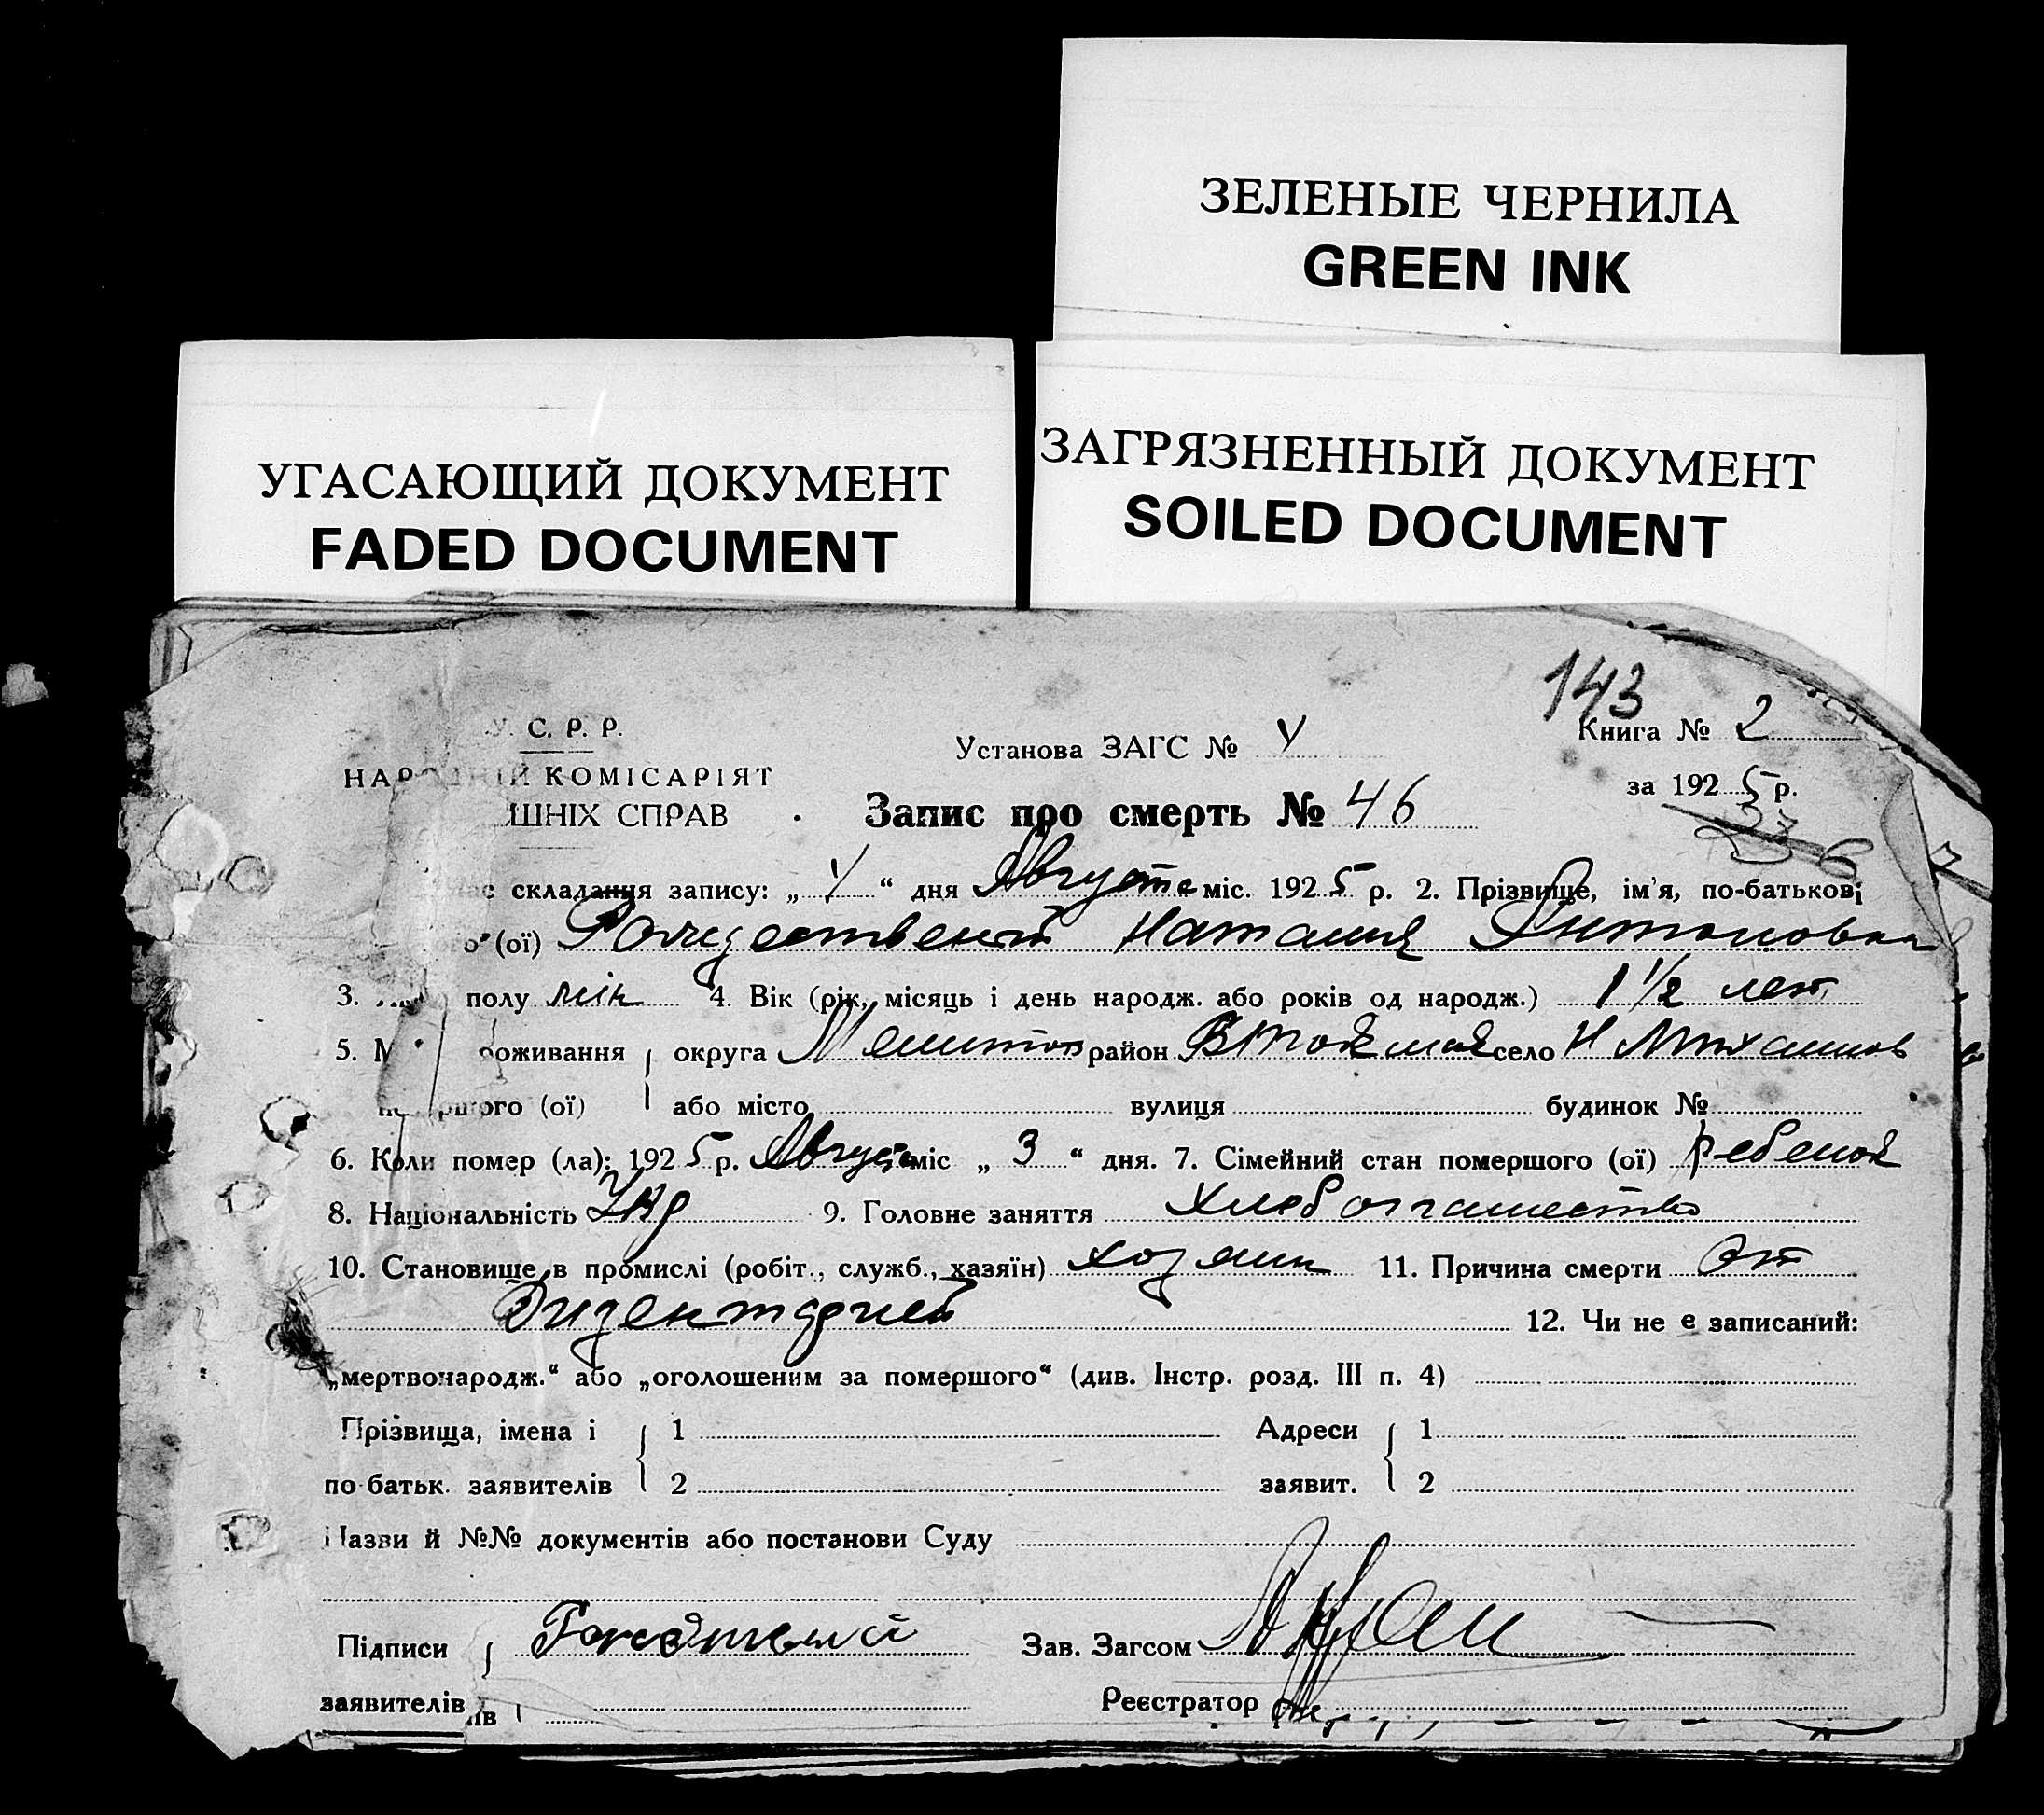 ЗЕЛЕНЫЕ ЧЕРНИЛА
GREEN INK
УГАСАЮЩИЙ ДОКУМЕНТ
FADED DOCUMENT
ЗАГРЯЗНЕННЫЙ ДОКУМЕНТ
SOILED DOCUMENT
143
У. С. Р. Р.
Установа ЗАГС №
Книга № 2
НАРОДНІЙ КОМІСАРІЯТ
за 1925 р.
ШНІХ СПРАВ
Запис про смерть № 46
складання запису: „ “ дня Августа міс. 1925 р. 2. Прізвище, ім'я, по-батькові
(ої) Наталия Антоновна
3. полу 4. Вік (рік, місяць і день народж. або років од народж.) 1 1/2 лет
5. оживання округа район село Н Михайлов
або місто вулиця будинок №
6. Коли помер (ла): 1925 р. Август міс „ 3 “ дня. 7. Сімейний стан помершого (ої) ребенок
8. Національність Укр 9. Головне заняття хлебопашество
10. Становище в промислі (робіт., служб., хазяїн) хозяин 11. Причина смерти От
Дизентерией 12. Чи не є записаний:
„мертвонародж.“ або „оголошеним за помершого“ (див. Інстр. розд. III п. 4)
Прізвища, імена і 1 Адреси 1
по-батьк. заявителів 2 заявит. 2
Назви й №№ документів або постанови Суду
Підписи Зав. Загсом
заявителів Реєстратор